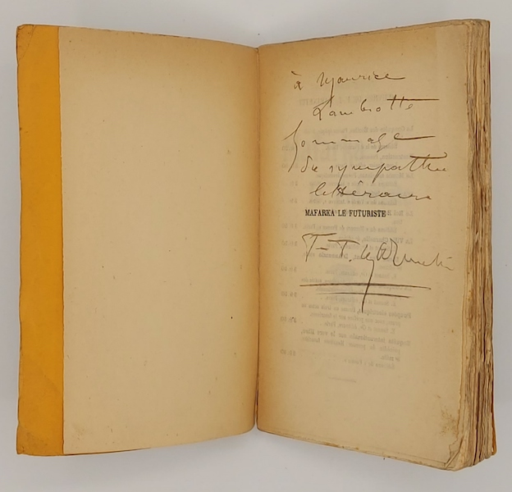 à Maurice
Lambiotte
hommage
de sympathie
littéraire
MAFARKA LE FUTURISTE
F-T. Marinetti